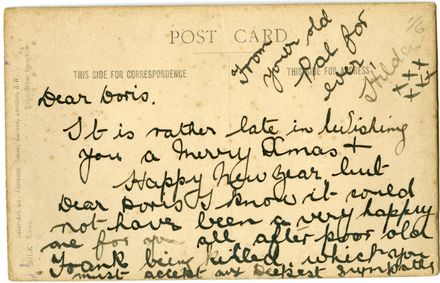 POST CARD
THIS SIDE FOR CORRESPONDENCE
THIS SIDE FOR ADDRESS
1/6
From
your old
Pal for
ever
Hilda
Dear Doris.
It is rather late in Wishing
you a Merry Xmas +
Happy New Year, but
Dear Doris I know it could
not have been a very happy
one for you all after poor old
Frank being killed, which you
must accept my Deepest Sympathy